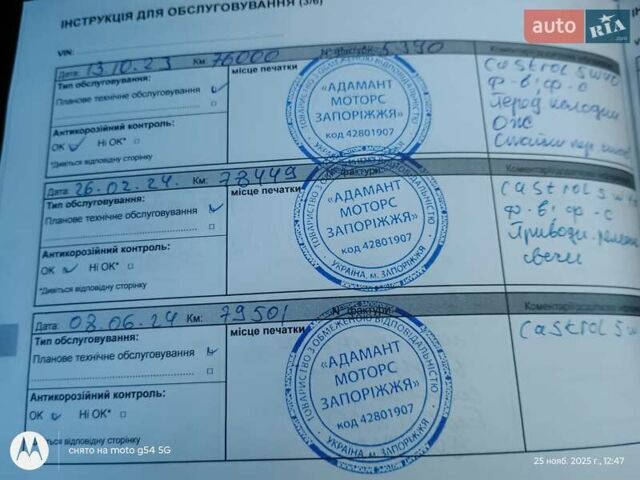 ІНСТРУКЦІЯ ДЛЯ ОБСЛУГОВУВАННЯ (3/6)
auto RIA .com
VIN:
Дата: 13.10.23 Км: 76000 N° фактури: 5390
Тип обслуговування:
Планове технічне обслуговування
місце печатки
Антикорозійний контроль:
OK Ні ОК*
*Дивіться відповідну сторінку
ТОВАРИСТВО З ОБМЕЖЕНОЮ ВІДПОВІДАЛЬНІСТЮ
«АДАМАНТ
МОТОРС
ЗАПОРІЖЖЯ»
код 42801907
Коментарі
Castrol 5w40
ф-в; ф-с
Перед колодки
ОЖ
Дата: 26.02.24. Км: 78449 фактури:
Тип обслуговування:
Планове технічне обслуговування
місце печатки
Антикорозійний контроль:
OK Ні ОК*
*Дивіться відповідну сторінку
ТОВАРИСТВО З ОБМЕЖЕНОЮ ВІДПОВІДАЛЬНІСТЮ
«АДАМАНТ
МОТОРС
ЗАПОРІЖЖЯ»
код 42801907
УКРАЇНА, м. ЗАПОРІЖЖЯ
Castrol 5w
ф-в; ф-с
Приводи.
свечи
Дата: 08.06.24 Км: 79501 N° фактури:
Тип обслуговування:
Планове технічне обслуговування
місце печатки
Антикорозійний контроль:
OK Ні ОК*
відповідну сторінку
ТОВАРИСТВО З ОБМЕЖЕНОЮ ВІДПОВІДАЛЬНІСТЮ
«АДАМАНТ
МОТОРС
ЗАПОРІЖЖЯ»
код 42801907
УКРАЇНА, м. ЗАПОРІЖЖЯ
Коментарі
Castrol 5w
снято на moto g54 5G
25 нояб. 2025 г., 12:47